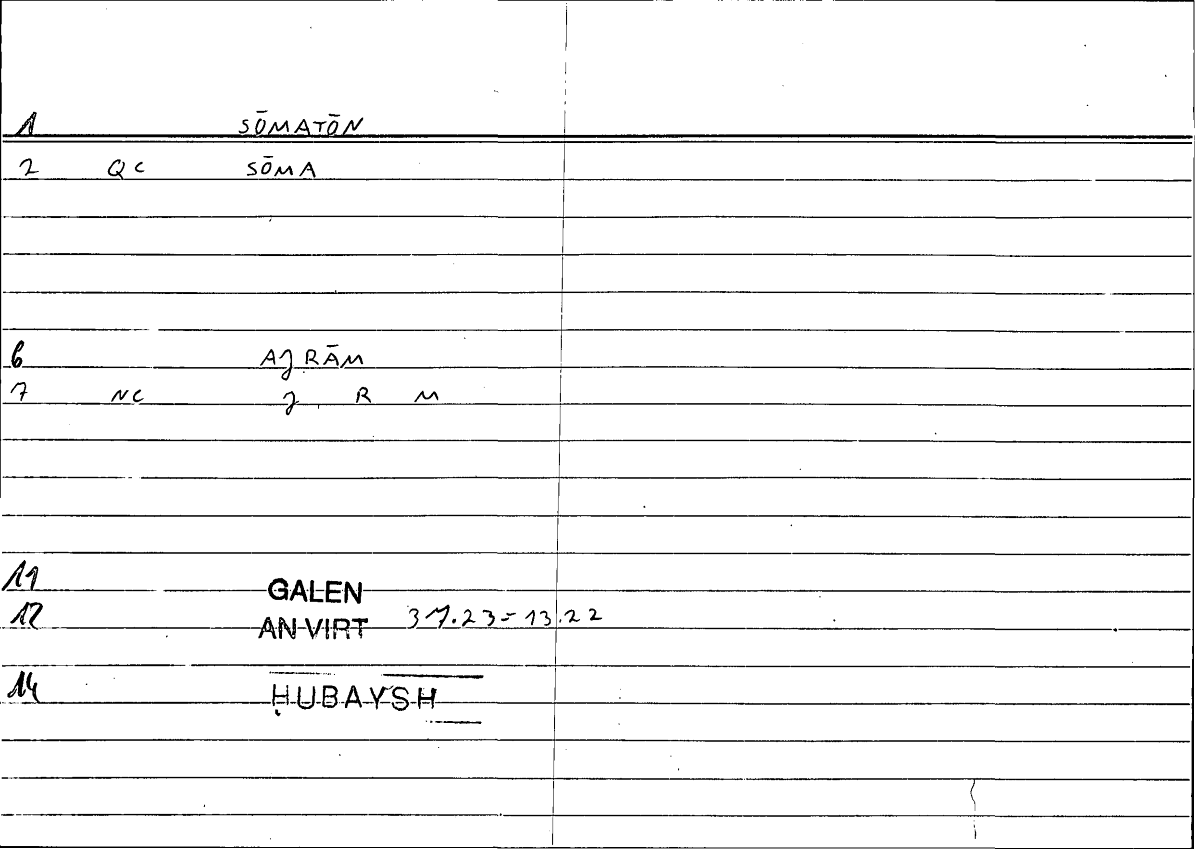 1 SŌMATŌN
2 QC SŌMA
6 AJRĀM
7 NC J R M
11 GALEN
12 AN VIRT 31.23=13.22
14 ḤUBAYSH